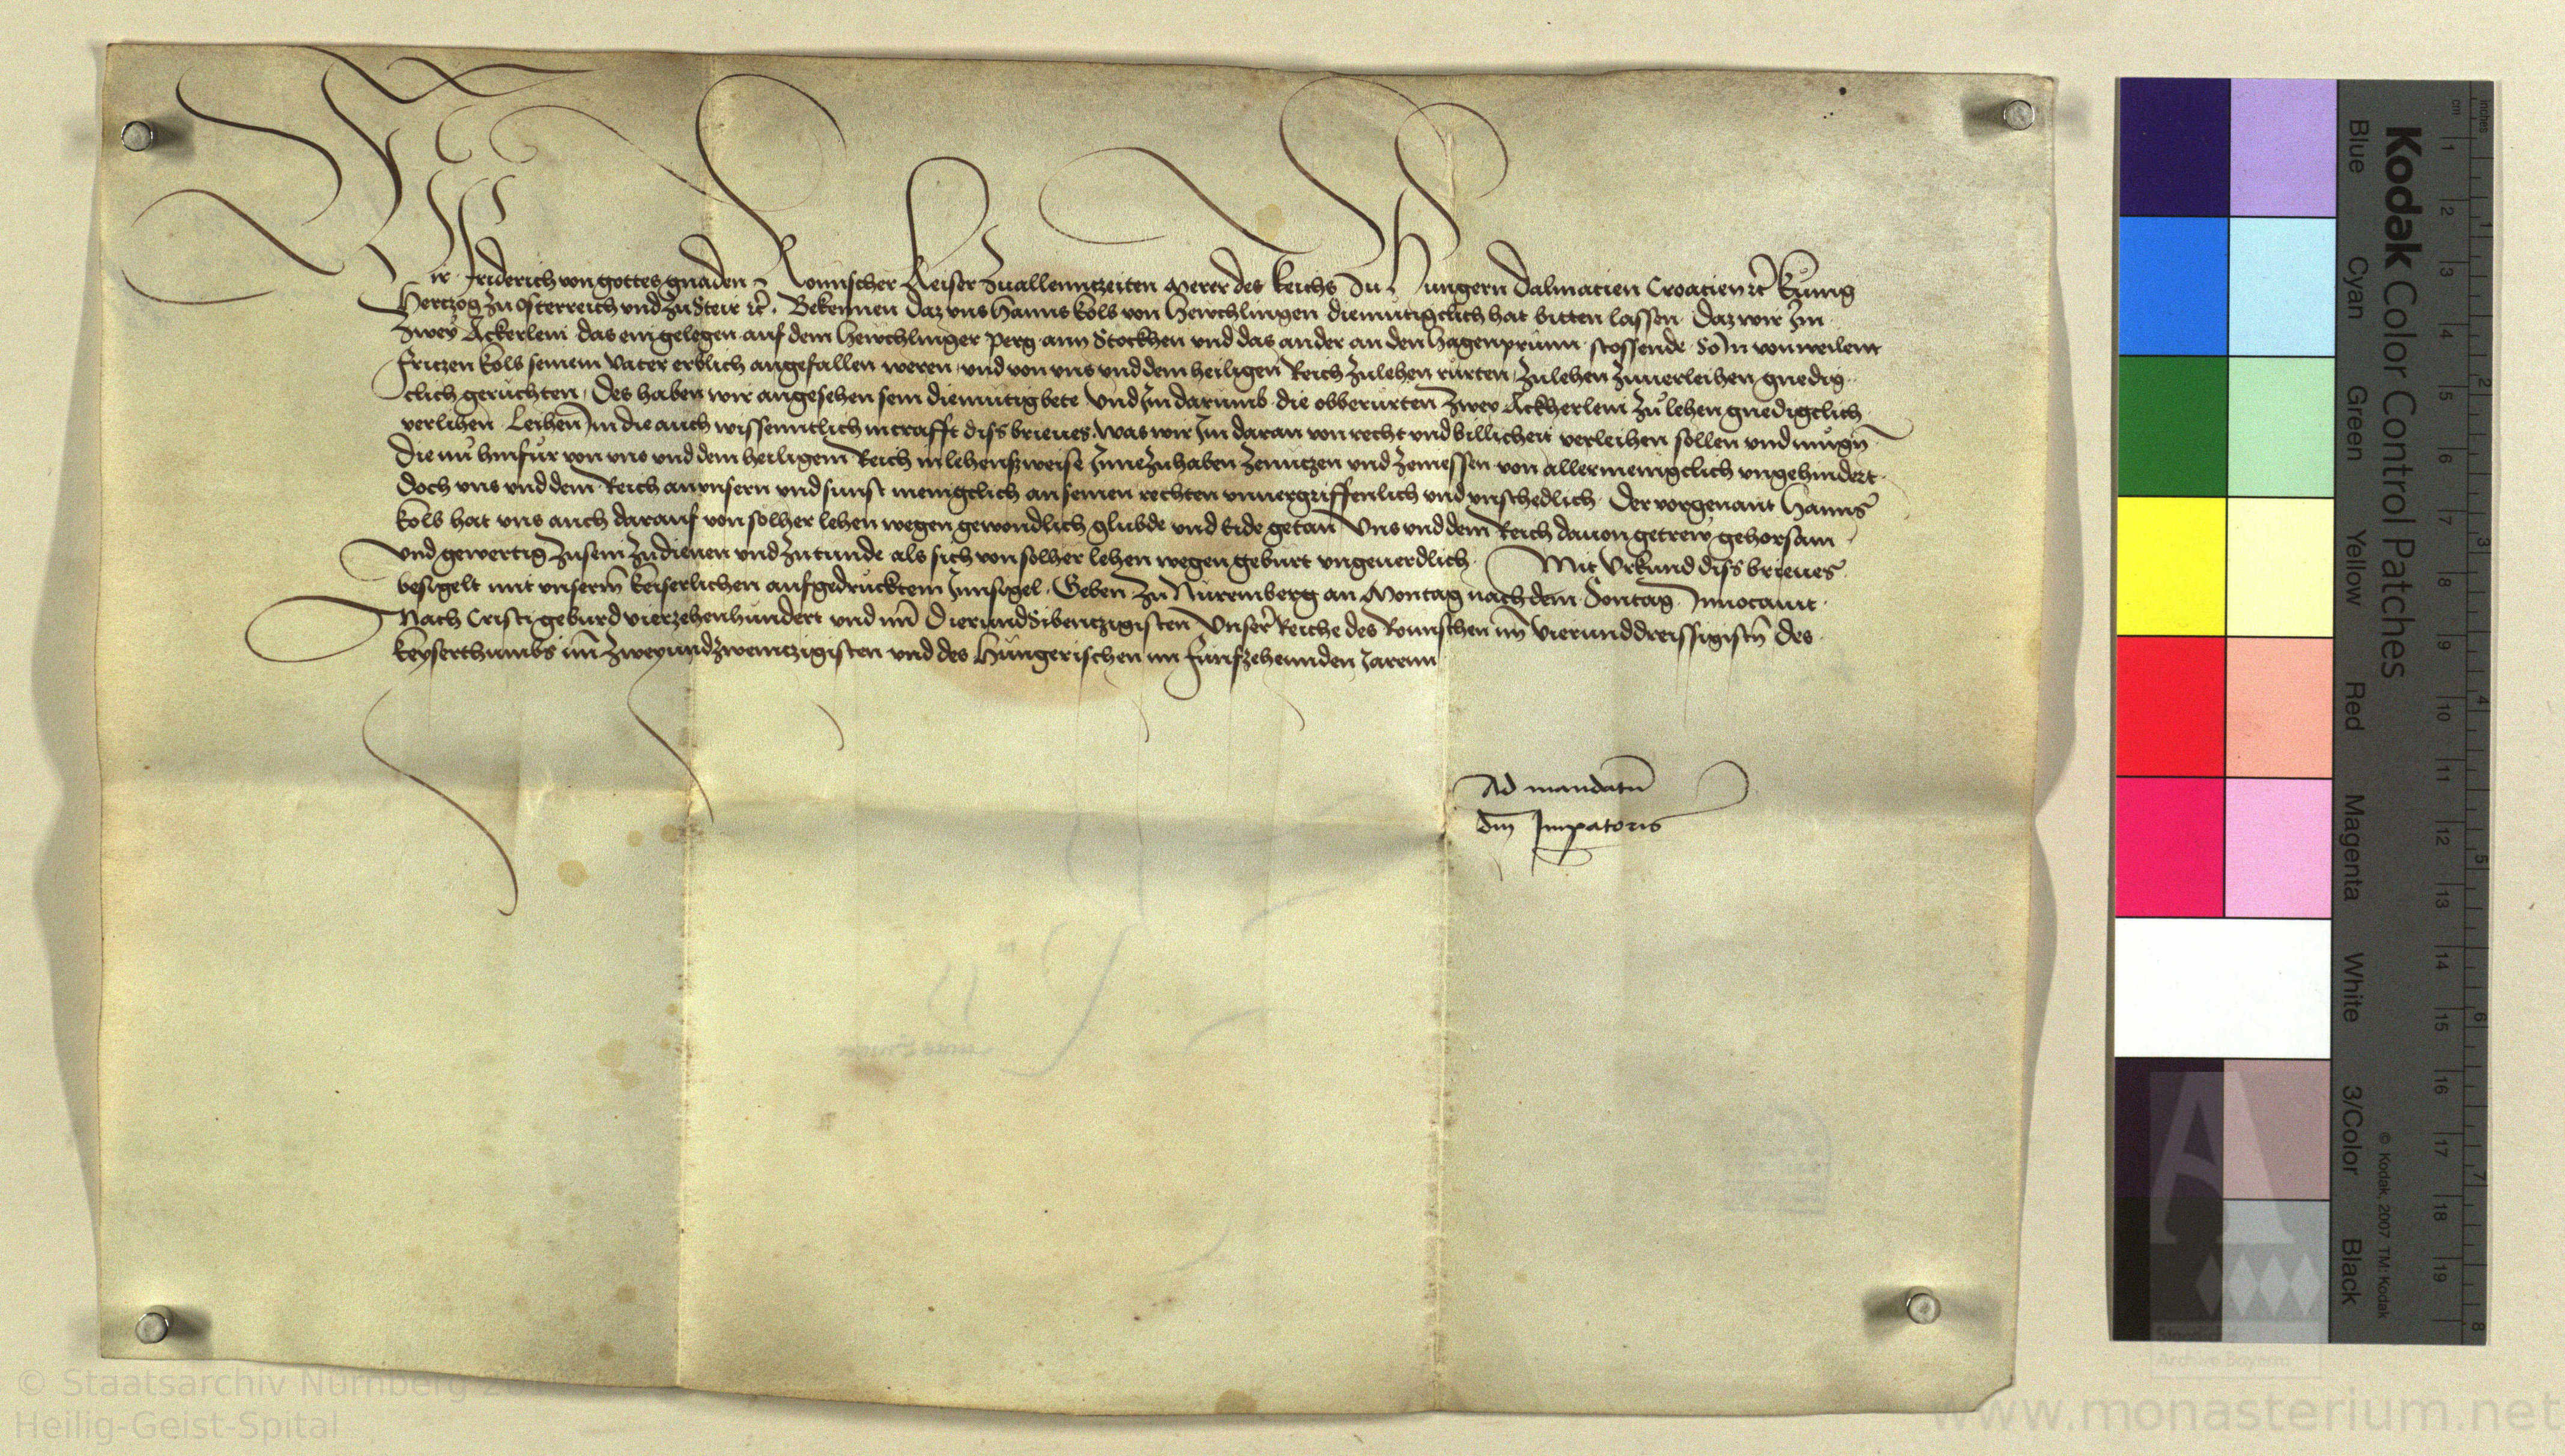 Wir Friderich von gottes gnaden Romischer Keiser zuallenntzeiten Merer des Reichs zu Hungern Dalmacien Croacien zc̃ Kunig
Hertzog zu Osterreich und zu Steir zc̃. Bekennen daz uns Hanns Kols von Hewchlingen diemutigclich hat bitten lassen daz wir Im
zwey Ackerlein das ein gelegen auf dem Hewchlinger perg ann Stockhen und das ander an den Hagenprunn stossende So In von weilent
Fritzen Kols seinem vater erblich angefallen weren und von uns und dem heiligen Reich zulehen rurten zulehen zuuerleihen gnedig
clich geruchten, Des haben wir angesehen sein diemutig bete Und Im darumb die obberurten zwey Ackherlein zu lehen gnedigclich
verlihen Leihen Im die auch wissenntlich in crafft diss brieues, was wir Im daran von recht und billicheit verleihen sollen und mugn̄
Die nu hinfur von uns und dem heiligem Reich in lehenszweise Innezuhaben zenutzen und zeniessen von allermenigclich ungehindert
Doch uns und dem Reich an unsern und sunst menigclich an seinen rechten unuergriffenlich und unschedlich Der vorgenant Hanns
Kols hat uns auch darauf von solher lehen wegen gewondlich glubde und Eide getan Uns und dem Reich dauon getrew gehorsam
und gewertig zusein zudienen und zutunde als sich von solher lehen wegen geburt ungeuerdlich Mit Urkund diss brieues
besigelt mit unserm̄ keiserlichen aufgedrucktem Innsigel. Geben zu Nuremberg an Montag nach dem Sontag Inuocauit
Nach Cristi geburd vierzehenhundert und im̄ Vierundsibentzigisten Unser̄ Reiche des Romischen im̄ Vierunddreissigistn̄ des
keyserthumbs im̄ zweyundzweintzigisten und des Hungerischen im funfzehennden Jarenn
Ad mandatū
dn̄i Impatoris
Kodak Color Control Patches
Blue Cyan Green Yellow Red Magenta White 3/Color Black
© Kodak, 2007 TM: Kodak
inches 1 2 3 4 5 6 7 8
cm 1 2 3 4 5 6 7 8 9 10 11 12 13 14 15 16 17 18 19
© Staatsarchiv Nürnberg
Heilig-Geist-Spital
www.monasterium.net